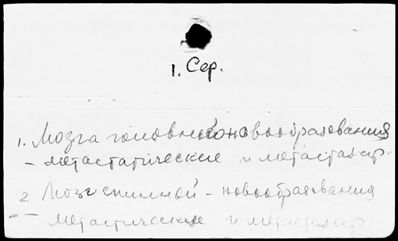 1. Сер.
1. Мозга головного новообразования
– метастатические и метастазир.
2 Мозг спинной – новообразования
– метастические и метастазир.